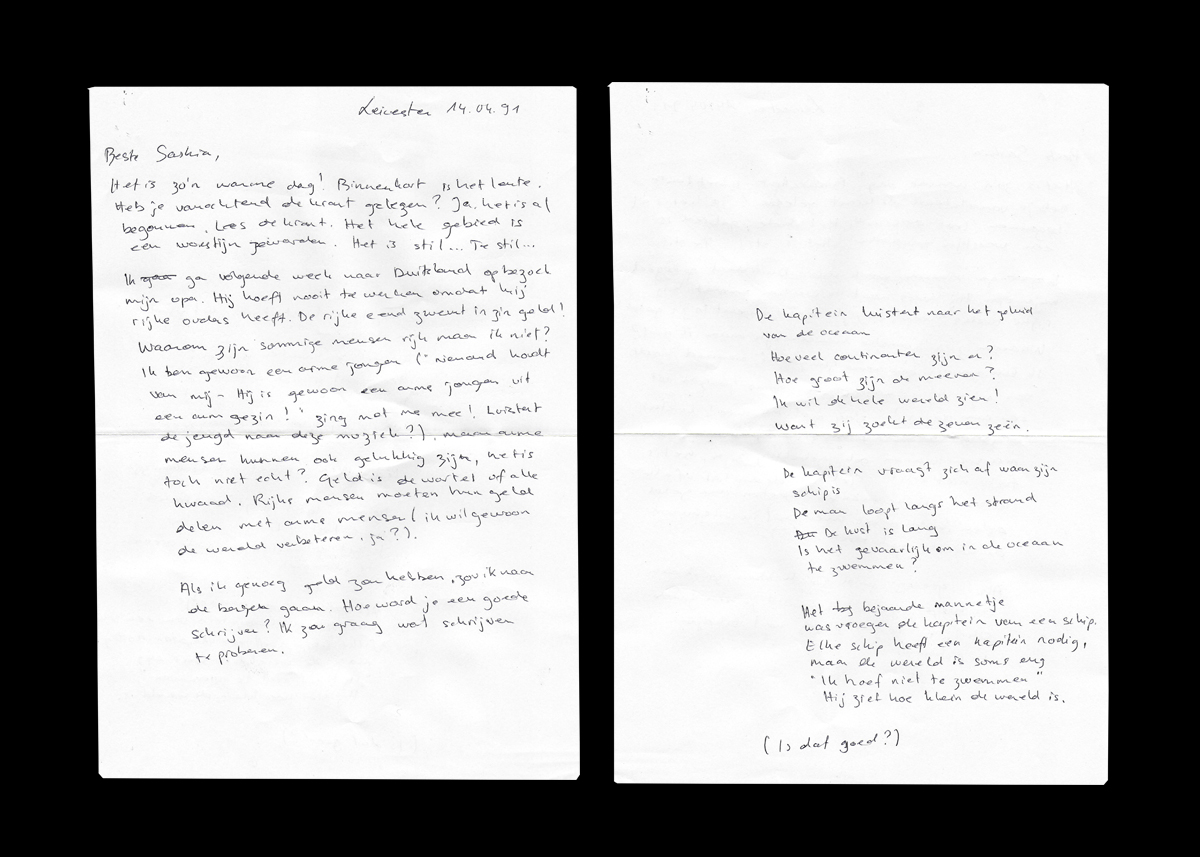 Leicester 14.04.91
Beste Saskia,
Het is zo'n warme dag! Binnenkort is het lente.
Heb je vanochtend de krant gelezen? Ja, het is al
begonnen. Lees de krant. Het hele gebied is
een woestijn geworden. Het is stil... Te stil...
Ik gaa ga volgende week naar Duitsland op bezoek
mijn opa. Hij hoeft nooit te werken omdat hij
rijke ouders heeft. De rijke eend zwemt in zijn geld!
Waarom zijn sommige mensen rijk maar ik niet?
Ik ben gewoon een arme jongen ("niemand houdt
van mij - Hij is gewoon een arme jongen uit
een arm gezin!" zing met me mee! Luistert
de jeugd naar deze muziek?). maar arme
mensen kunnen ook gelukkig zijn, het is
toch niet echt? Geld is de wortel of alle
kwaad. Rijke mensen moeten hun geld
delen met arme mensen (ik wil gewoon
de wereld verbeteren, ja?).
Als ik genoeg geld zou hebben, zou ik naar
de bergen gaan. Hoe word je een goede
schrijver? Ik zou graag wat schrijven
te proberen.
De kapitein luistert naar het geluid
van de oceaan
Hoeveel continenten zijn er?
Hoe groot zijn de meeren?
Ik wil de hele wereld zien!
Want zij zoekt de zeven zeën.
De kapitein vraagt zich af waar zijn
schip is
De man loopt langs het strand
De kust is lang
Is het gevaarlijk om in de oceaan
te zwemmen?
Het bejaarde mannetje
was vroeger de kapitein van een schip.
Elke schip heeft een kapitein nodig,
maar de wereld is soms eng
"Ik hoef niet te zwemmen"
Hij ziet hoe klein de wereld is.
(Is dat goed?)